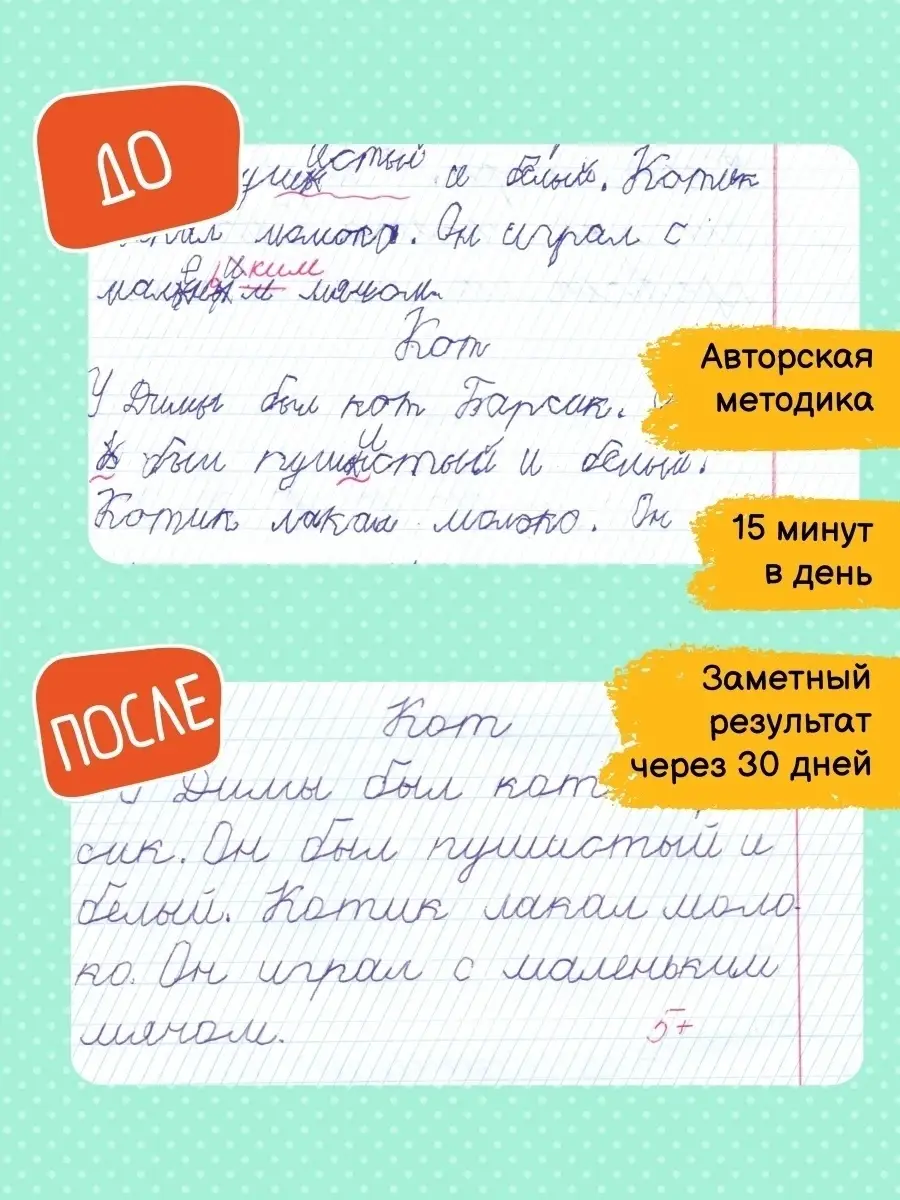 ДО
и белый. Котик
молоко. Он играл с
мячом.
Кот
У Димы был кот Барсик.
был пушистый и белый.
Котик лакал молоко. Он
Авторская
методика
15 минут
в день
ПОСЛЕ
Заметный
результат
через 30 дней
Кот
У Димы был кот
сик. Он был пушистый и
белый. Котик лакал моло-
ко. Он играл с маленьким
мячом.
5+